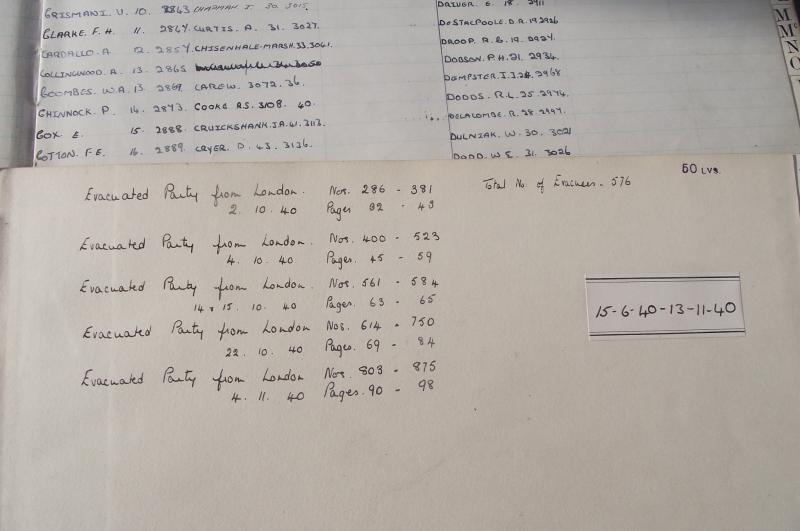 GRISMANI. V. 10. 2843 CHAPMAN J. 30. 3015.
CLARKE. F. H. 11. 2847. CURTIS. A. 31. 3027.
CARDALLO. A. 12. 2857. CHISENHALE-MARSH. 33. 3041.
COLLINGWOOD. A. 13. 2865
COOMBES. W.A. 13. 2869. CAREW. 3072. 36.
CHINNOCK. P. 14. 2873. COOKE R.S. 3108. 40.
COX E. 15. 2888. CRUICKSHANK. J.A. 41. 3113.
COTTON. F.E. 16. 2889. CRYER. D. 43. 3136.
DRIVER. E. 18. 2911
DESTACPOOLE. D.R. 19. 2926
DROOP. A. E. 19. 2927.
DOBSON. P.H. 21. 2934.
DEMPSTER. I. J. 24. 2968
DODDS. R.L. 25. 2974.
DELACOMBE. R. 28. 2997.
DULNIAK. W. 30. 3021
DODD. W E. 31. 3026
M
Mc
N
O
50 LVS.
Total No. of Evacuees. 576
Evacuated Party from London. Nos. 286 - 381
2. 10. 40 Pages 32 - 43
Evacuated Party from London. Nos. 400 - 523
4. 10. 40 Pages. 45 - 59
Evacuated Party from London. Nos. 561 - 584
14 & 15. 10. 40 Pages. 63 - 65
Evacuated Party from London Nos. 614 - 750
22. 10. 40 Pages. 69 - 84
Evacuated Party from London Nos. 803 - 875
4. 11. 40 Pages. 90 - 98
15-6-40-13-11-40